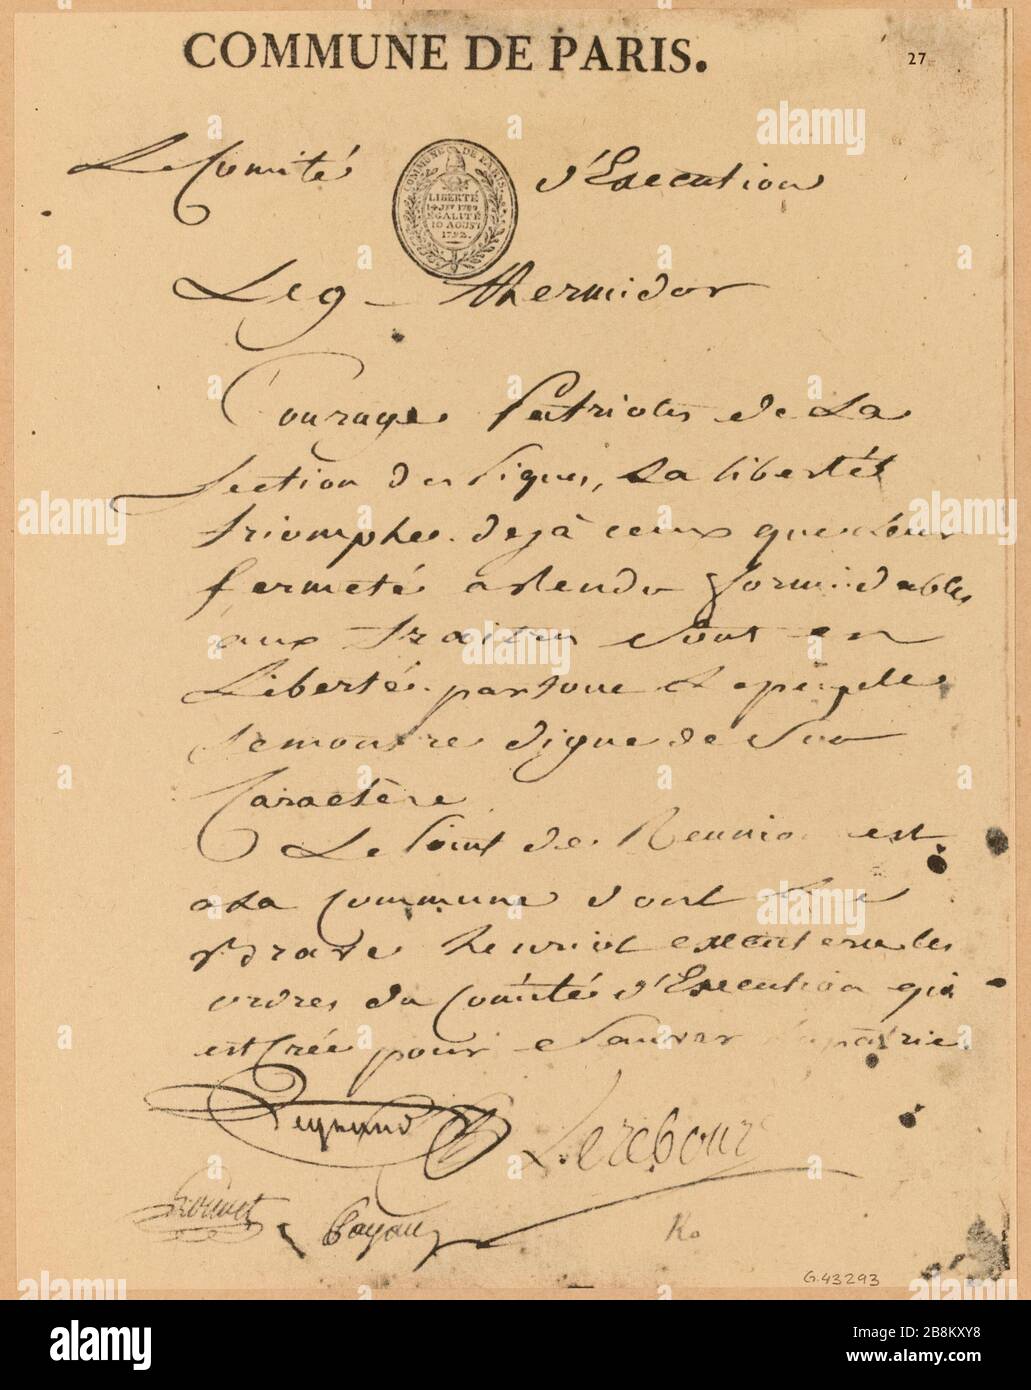 COMMUNE DE PARIS.
27
Le Comité d'Execution
COMMUNE DE PARIS.
LIBERTÉ
14 JUI 1789
EGALITÉ
10 AOUST
1792.
Le 9 – thermidor
Courage Patriotes de la
Section des Piques, la liberté
triomphe. dejà ceux que leur
fermeté a rendu formidables
aux traitres sont en
Liberté. partout le peuple
se montre digne de son
Caractère
Le Point de Reunion est
a la Commune dont le
brave henriot executera les
ordres du Comité d'Execution qui
est Crée pour Sauver la patrie.
Legrand Lerebours
Payan Ro
G.43293
alamy
Image ID: 2B8KXY8
www.alamy.com